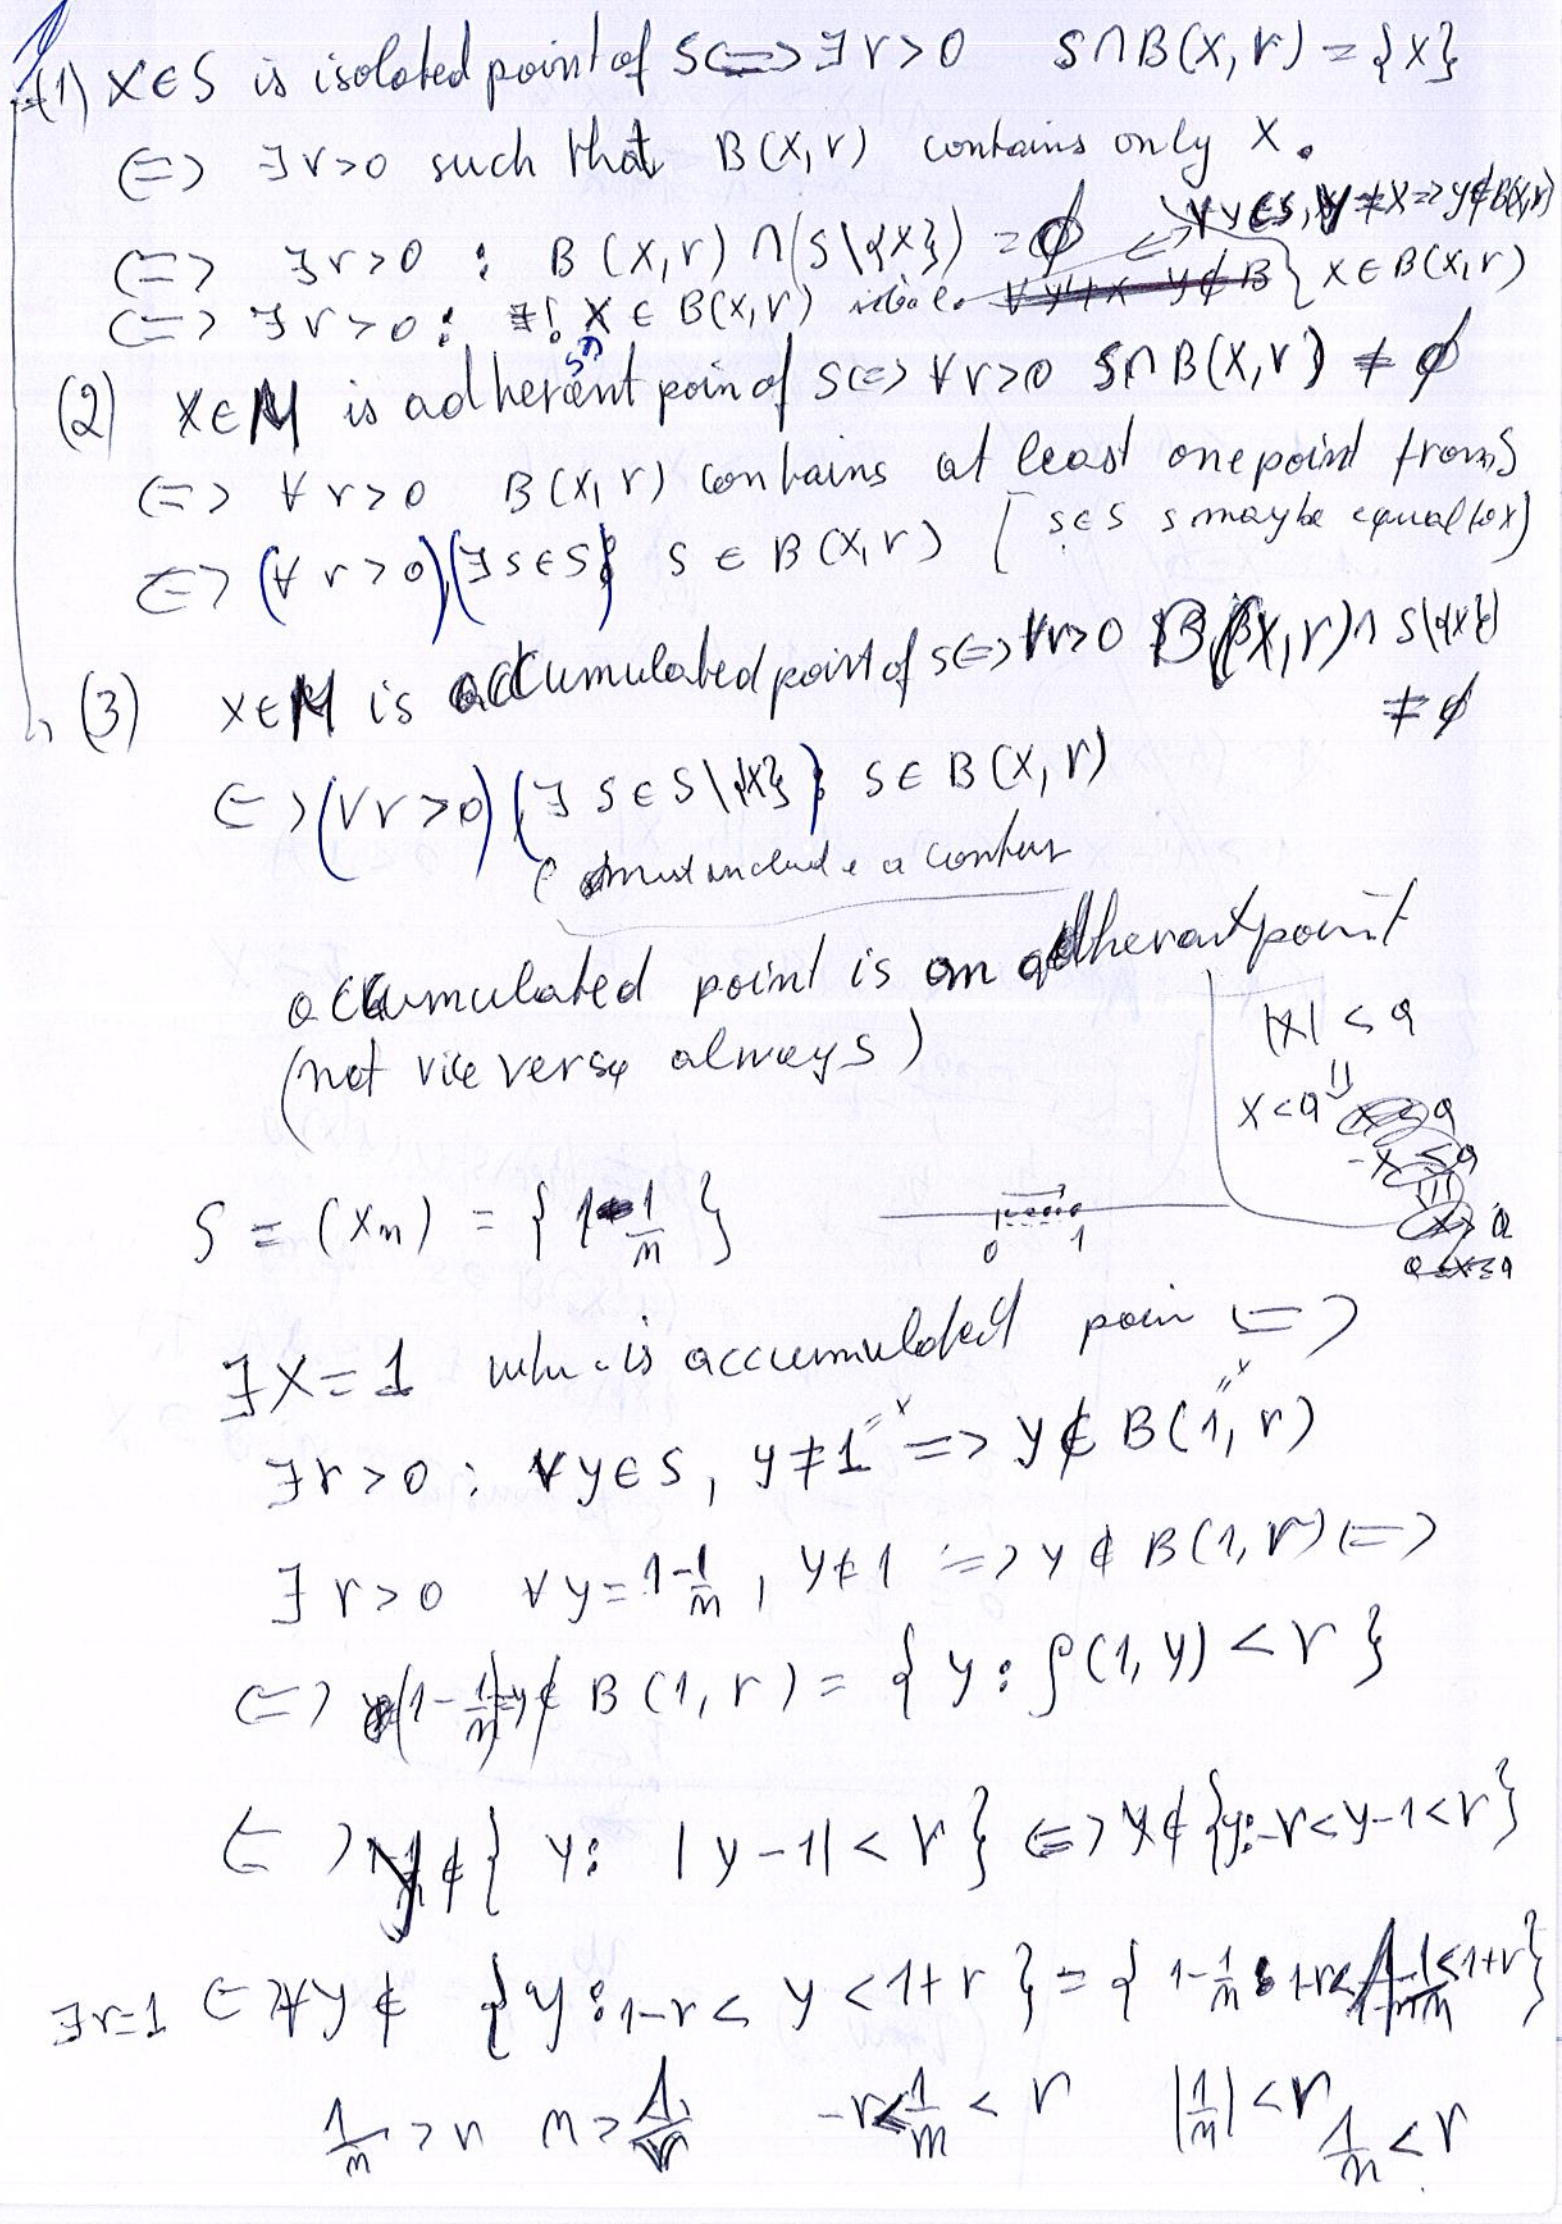 (1) x∈S is isolated point of S <=> ∃ r>0 S∩B(x,r) = {x}
<=> ∃ r>0 such that B(x,r) contains only x.
<=> ∃ r>0 : B(x,r) ∩ (S\{x}) = ∅ <=> ∀y∈S, y≠x => y∉B(x,r)
<=> ∃ r>0 : ∃! x ∈ B(x,r) x∈B(x,r)
(2) x∈M is adherent poin of S <=> ∀r>0 S∩B(x,r) ≠ ∅
<=> ∀ r>0 B(x,r) contains at least one point from S
<=> (∀ r>0)(∃ s∈S) s ∈ B(x,r) [ s∈S s maybe equal to x)
(3) x∈M is accumulated point of S <=> ∀r>0 B(x,r)∩ S\{x}
≠ ∅
<=> (∀r>0)(∃ s∈S\{x}) : s∈B(x,r)
accumulated point is an adherent point
(not vice versa always)
|x| < a
x<a
-x ≤ a
S = (xn) = { 1-1/n }
0 1
∃x=1 is accumulated poin <=>
∃r>0 : ∀y∈S, y≠1 "=x" => y∉B(1,r) "=x"
∃ r>0 ∀y=1-1/n, y≠1 => y∉B(1,r) <=>
<=> (1-1/n)=y∉ B(1,r) = { y : ρ(1,y) < r }
<=> y∉{ y: |y-1|<r } <=> y∉{y:-r<y-1<r}
∃r=1 <=> ∀y∉ {y : 1-r< y <1+r } = { 1-1/n : 1-r< 1-1/n <1+r}
1/n > r n > 1/r -r<1/n<r |1/n|<r 1/n<r